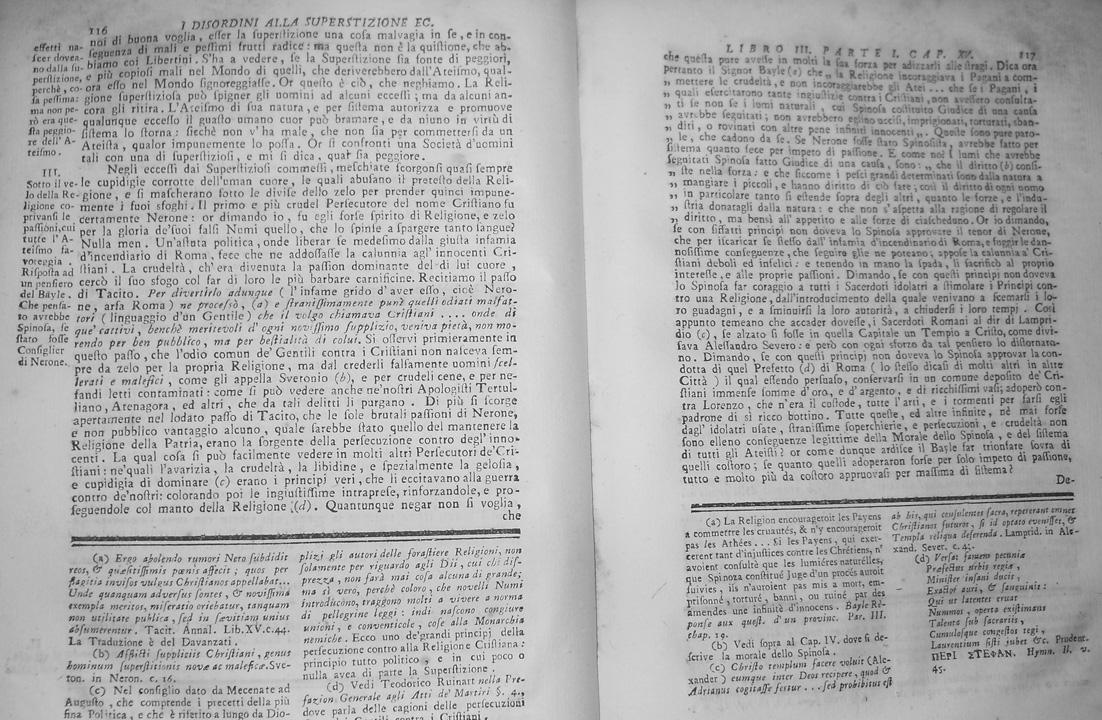 116
I DISORDINI ALLA SUPERSTIZIONE EC.
effetti na-
scer dovea-
no dalla su-
perstizione,
perchè, co-
sa pessima:
ma non pe-
rò era que-
sta peggio-
re dell'A-
teismo.
noi di buona voglia, esser la superstizione una cosa malvagia in se, e in con-
seguenza di mali e pessimi frutti radice: ma questa non è la quistione, che ab-
biamo coi Libertini. S'ha a vedere, se la Superstizione sia fonte di peggiori,
e più copiosi mali nel Mondo di quelli, che deriverebbero dall'Ateismo, qual-
ora esso nel Mondo signoreggiasse. Or questo è ciò, che neghiamo. La Reli-
gione superstiziosa può spigner gli uomini ad alcuni eccessi; ma da alcuni an-
cora gli ritira. L'Ateismo di sua natura, e per sistema autorizza e promuove
qualunque eccesso il guasto umano cuor può bramare, e da niuno in virtù di
sistema lo storna: sicchè non v'ha male, che non sia per commettersi da un
Ateista, qualor impunemente lo possa. Or si confronti una Società d'uomini
tali con una di superstiziosi, e mi si dica, qual sia peggiore.
III.
Sotto il ve-
lo della Re-
ligione co-
privansi le
passioni, cui
tutte l'A-
teismo fa-
voreggia.
Risposta ad
un pensiero
del Bayle.
Che pensa-
to avrebbe
Spinosa, se
stato fosse
Consiglier
di Nerone.
Negli eccessi dai Superstiziosi commessi, meschiate scorgonsi quasi sempre
le cupidigie corrotte dell'uman cuore, le quali abusano il pretesto della Reli-
gione, e si mascherano sotto le divise dello zelo per prender quinci impune-
mente i suoi sfoghi. Il primo e più crudel Persecutore del nome Cristiano fu
certamente Nerone: or dimando io, fu egli forse spirito di Religione, e zelo
per la gloria de'suoi falsi Numi quello, che lo spinse a spargere tanto sangue?
Nulla men. Un'astuta politica, onde liberar se medesimo dalla giusta infamia
d'incendiario di Roma, fece che ne addossasse la calunnia agl'innocenti Cri-
stiani. La crudeltà, ch'era divenuta la passion dominante del di lui cuore,
cercò il suo sfogo col far di loro le più barbare carnificine. Recitiamo il passo
di Tacito. Per divertirlo adunque (l'infame grido d'aver esso, cioè Nero-
ne, arsa Roma) ne processò, (a) e stranissimamente punì quelli odiati malfat-
tori (linguaggio d'un Gentile) che il volgo chiamava Cristiani .... onde di
que' cattivi, benchè meritevoli d'ogni novissimo supplizio, veniva pietà, non mo-
rendo per ben pubblico, ma per bestialità di colui. Si osservi primieramente in
questo passo, che l'odio comun de' Gentili contra i Cristiani non nasceva sem-
pre da zelo per la propria Religione, ma dal crederli falsamente uomini scel-
lerati e malefici, come gli appella Svetonio (b), e per crudeli cene, e per ne-
fandi letti contaminati: come si può vedere anche ne'nostri Apologisti Tertul-
liano, Atenagora, ed altri, che da tali delitti li purgano. Di più si scorge
apertamente nel lodato passo di Tacito, che le sole brutali passioni di Nerone,
e non pubblico vantaggio alcuno, quale sarebbe stato quello del mantenere la
Religione della Patria, erano la sorgente della persecuzione contro degl'inno-
centi. La qual cosa si può facilmente vedere in molti altri Persecutori de'Cri-
stiani: ne'quali l'avarizia, la crudeltà, la libidine, e spezialmente la gelosia,
e cupidigia di dominare (c) erano i principj veri, che li eccitavano alla guerra
contro de'nostri: colorando poi le ingiustissime intraprese, rinforzandole, e pro-
seguendole col manto della Religione (d). Quantunque negar non si voglia,
che
(a) Ergo abolendo rumori Nero subdidit
reos, & quæsitissimis pœnis affecit; quos per
flagitia invisos vulgus Christianos appellabat...
Unde quanquam adversus sontes, & novissima
exempla meritos, miseratio oriebatur, tanquam
non utilitate publica, sed in sævitiam unius
absumerentur. Tacit. Annal. Lib.XV.c.44.
La Traduzione è del Davanzati.
(b) Afflicti suppliciis Christiani, genus
hominum superstitionis novæ ac maleficæ. Sve-
ton. in Neron. c. 16.
(c) Nel consiglio dato da Mecenate ad
Augusto, che comprende i precetti della più
fina Politica, e che è riferito a lungo da Dio-
plizj gli autori delle forastiere Religioni, non
solamente per riguardo agli Dii, cui chi dis-
prezza, non farà mai cosa alcuna di grande;
ma sì vero, perchè coloro, che novelli Numi
introducono, traggono molti a vivere a norma
di pellegrine leggi: indi nascono congiure
unioni, e conventicole, cose alla Monarchia
nemiche. Ecco uno de'grandi principj della
persecuzione contro alla Religione Cristiana:
principio tutto politico, e in cui poco o
nulla avea di parte la Superstizione.
(d) Vedi Teodorico Ruinart nella Pre-
fazion Generale agli Atti de' Martiri §. 4.,
dove parla delle cagioni delle persecuzioni
LIBRO III. PARTE I. CAP. XV.
117
che questa pure avesse in molti la sua forza per adizzarli alle stragi. Dica ora
pertanto il Signor Bayle (a) che „ la Religione incoraggiava i Pagani a com-
„ mettere le crudeltà, e non incoraggerebbe gli Atei ... che se i Pagani, i
„ quali esercitarono tante ingiustizie contra i Cristiani, non avessero consulta-
„ ti se non se i lumi naturali, cui Spinosa costituito Giudice di una causa
„ avrebbe seguitati; non avrebbero egino uccisi, imprigionati, torturati, sban-
„ diti, o rovinati con altre pene infiniti innocenti „. Queste sono pure paro-
„ le, che cadono da se. Se Nerone fosse stato Spinosista, avrebbe fatto per
sistema quanto fece per impeto di passione. E come no? i lumi che avrebbe
seguitati Spinosa fatto Giudice di una causa, sono: „ che il diritto (b) consi-
„ ste nella forza: e che siccome i pesci grandi determinati sono dalla natura a
„ mangiare i piccoli, e hanno diritto di ciò fare; così il diritto di ogni uomo
„ in particolare tanto si estende sopra degli altri, quanto le forze, e l'indu-
„ stria donatagli dalla natura: e che non s'aspetta alla ragione di regolare il
„ diritto, ma bensì all'appetito e alle forze di ciascheduno. Or io dimando,
se con siffatti principj non doveva lo Spinosa approvare il tenor di Nerone,
che per iscaricar se stesso dall'infamia d'incendiario di Roma, e fuggir le dan-
nosissime conseguenze, che seguire glie ne poteano, appose la calunnia a' Cri-
stiani deboli ed infelici: e tenendo in mano la spada, li sacrificò al proprio
interesse, e alle proprie passioni. Dimando, se con questi principj non doveva
lo Spinosa far coraggio a tutti i Sacerdoti idolatri a stimolare i Principi con-
tro una Religione, dall'introducimento della quale venivano a scemarsi i lo-
ro guadagni, e a sminuirsi la loro autorità, a chiudersi i loro tempj. Così
appunto temeano che accader dovesse, i Sacerdoti Romani al dir di Lampri-
dio (c), se alzato si fosse in quella Capitale un Tempio a Cristo, come divi-
sava Alessandro Severo: e però con ogni sforzo da tal pensiero lo distornaro-
no. Dimando, se con questi principj non doveva lo Spinosa approvar la con-
dotta di quel Prefetto (d) di Roma (lo stesso dicasi di molti altri in altre
Città) il qual essendo persuaso, conservarsi in un comune deposito de' Cri-
stiani immense somme d'oro, e d'argento, e di ricchissimi vasi; adoperò con-
tra Lorenzo, che n'era il custode, tutte l'arti, e i tormenti per farsi egli
padrone di sì ricco bottino. Tutte queste, ed altre infinite, nè mai forse
dagl'idolatri usate, stranissime soperchierie, e persecuzioni, e crudeltà non
sono elleno conseguenze legittime della Morale dello Spinosa, e del sistema
di tutti gli Ateisti? or come dunque ardisce il Bayle far trionfare sovra di
quelli costoro; se quanto quelli adoperaron forse per solo impeto di passione,
tutto e molto più da costoro approvasi per massima di sistema?
De-
(a) La Religion encourageroit les Payens
a commettre les cruautés, & n'y encourageroit
pas les Athées ... si les Payens, qui exer-
cerent tant d'injustices contre les Chrétiens, n'
avoient consulté que les lumiéres naturelles,
que Spinoza constitué Juge d'un procès auroit
suivies, ils n'auroient pas mis a mort, em-
prisonné, torturé, banni, ou ruiné par des
amendes une infinité d'innocens. Bayle Ré-
ponse aux quest. d'un provinc. Par. III.
chap. 19.
(b) Vedi sopra al Cap. IV. dove si de-
scrive la morale dello Spinosa.
(c) Christo templum facere voluit (Ale-
xander) eumque inter Deos recipere, quod &
Adrianus cogitasse fertur ... sed prohibitus est
ab his, qui consulentes sacra, repererant omnes
Christianos futuros, si id optato evenisset, &
Templa reliqua deserenda. Lamprid. in Ale-
xand. Sever. c. 43.
(d) Versat famem pecuniæ
Præfectus urbis regiæ,
Minister insani ducis,
Exactor auri, & sanguinis:
Qui ut latentes eruat
Nummos, operta existimans
Talenta sub sacrariis,
Cumulosque congestos tegi,
Laurentium sisti jubet &c. Prudent.
ΠΕΡΙ ΣΤΕΦΑΝ. Hymn. II. v.
45.